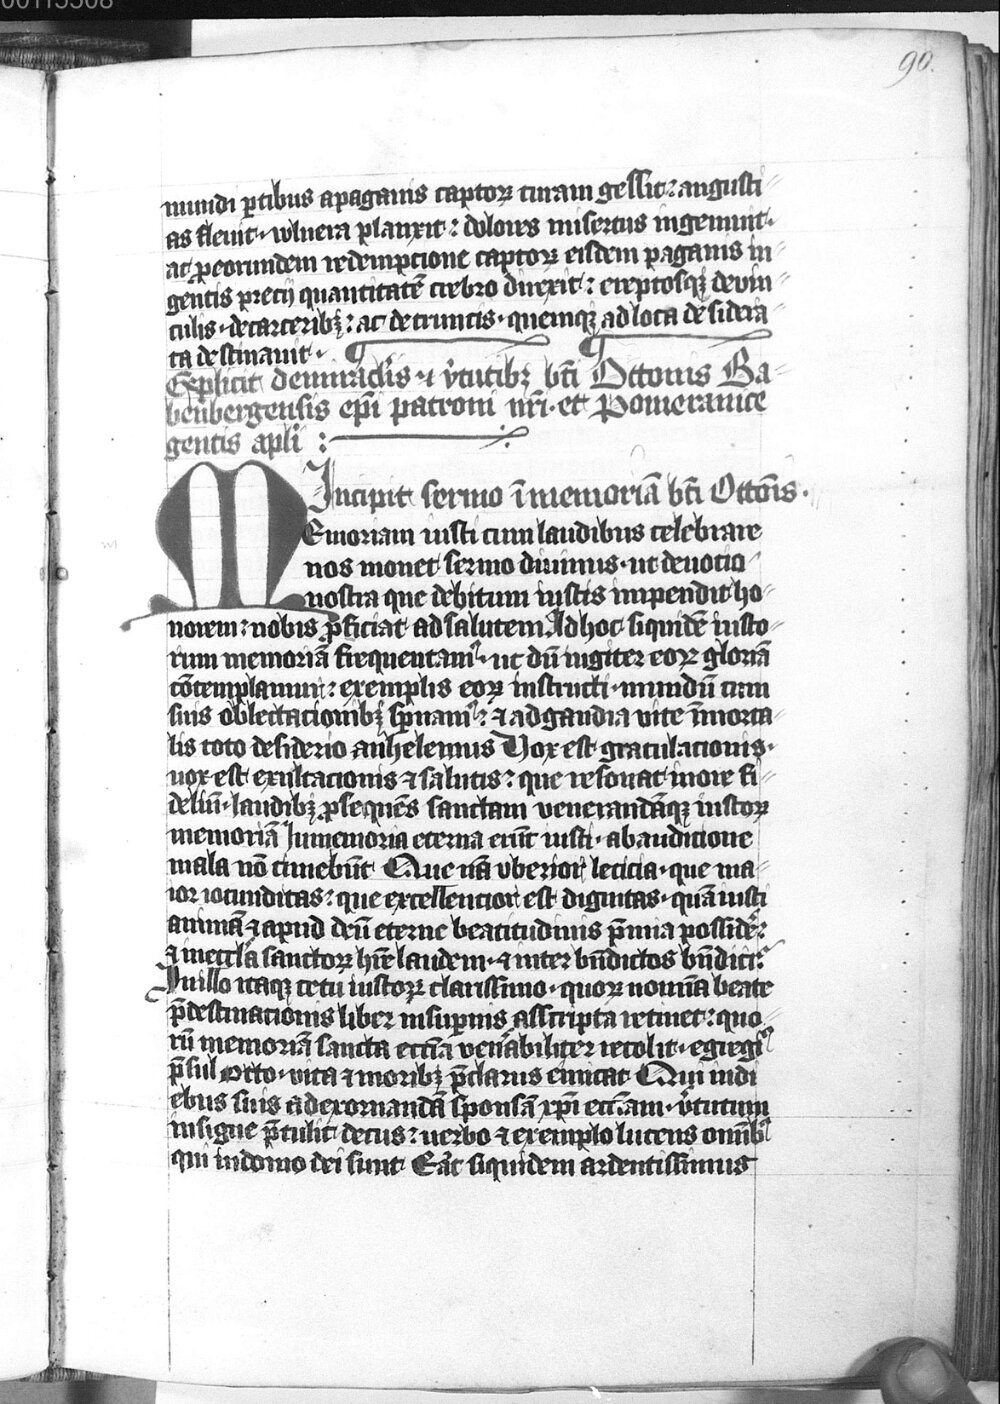 00115508
90.
mundi ꝑtibus a paganis captoꝝ curam gessit: angusti
as fleuit· wlnera planxit: dolores misertus ingemuit·
ac ꝓ eorundem redempcione captoꝝ eisdem paganis in
gentis precij quantitatē crebro direxit: ereptosqꝫ de vin
culis· de carceribꝫ: ac de truncis· quemqꝫ ad loca desidera
ta destinauit·
Explicit de miraclis· ⁊ v̓tutibꝫ bt̄i Ottonis Ba
benbergensis ep̄i patroni nr̄i· et Pomeranice
gentis apl̄i :
Incipit sermo ī memoriā bt̄i Ottōis·
MEmoriam iusti cum laudibus celebrare
nos monet sermo diuinus· ut deuotio
nostra que debitum iustis impendit ho
norem: nobis ꝓficiat ad salutem Ad hoc siquidē iusto
rum memoriā frequentamꝰ· ut dū iugiter eoꝝ gloriā
cōtemplamur: exemplis eoꝝ instructi· mundū cum
suis oblectacionibꝫ sp̄namꝰ: ⁊ ad gaudia vite īmorta
lis toto desiderio anhelemus Vox est gratulacionis·
uox est exultacionis ⁊ salutis: que resonat in ore fi
deliū· laudibꝫ ꝓsequēs sanctam venerandāqꝫ iustoꝝ
memoriā In memoria eterna erūt iusti· ab auditione
mala nō timebūt Que nā vberior leticia· que ma
ior iocunditas: que excellencior est dignitas· quā iusti
animā ⁊ apud deū eterne beatitudinis p̄mia possidē̓:
⁊ in eccl̄ia sanctoꝝ hr̄e laudem· ⁊ inter bn̄dictos bn̄dici:
In illo itaqꝫ cetu iustoꝝ clarissimo· quoꝝ noīa beate
p̄destinationis liber in suꝑnis asscripta retinet: quo
rū memoriā sancta ecc̄ia ven̓abiliter recolit· egregiꝰ
p̄sul Otto· vita ⁊ moribꝫ p̄clarus emicat Qui in di
ebus suis ad exornandā sponsā xp̄i ecc̄iam· v̓tutum
insigne p̄tulit decus: uerbo ⁊ exemplo lucens om̄ibꝰ
qui in domo dei sunt Erāt siquidem ardentissimus